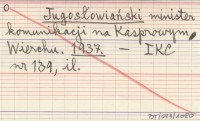 Jugosłowiański minister
komunikacji na Kasprowym
Wierchu. 1937. – IKC
nr 139, il.